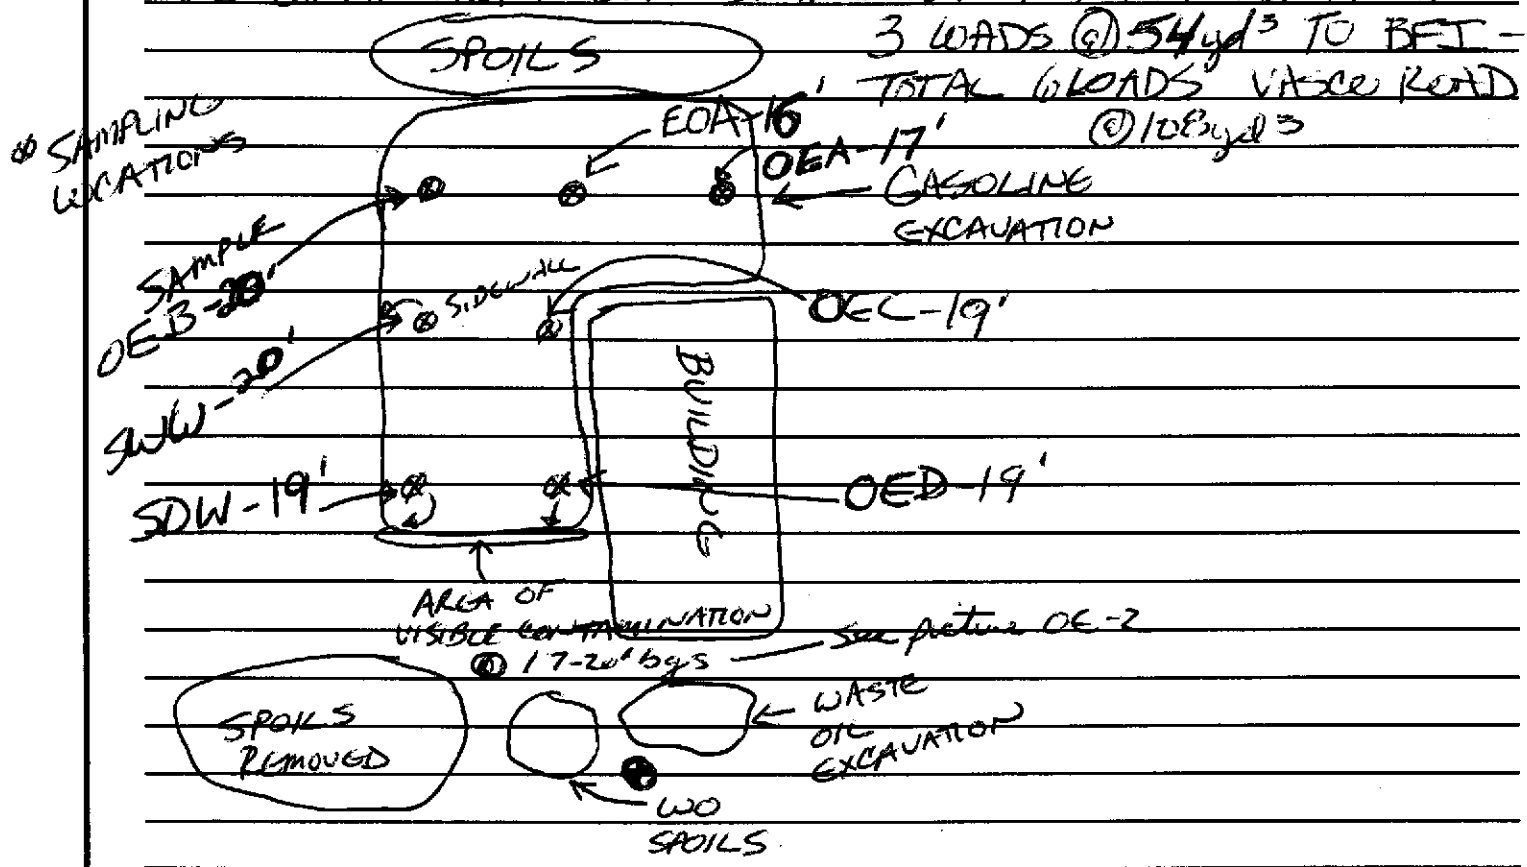 SPOILS
3 LOADS @ 54yd³ TO BFI -
TOTAL 6 LOADS VASCO ROAD
@ 108yd³
⊗ SAMPLING
LOCATIONS
EOA-16'
OEA-17'
GASOLINE
EXCAVATION
SAMPLE
OEB-20'
SIDEWALL
OEC-19'
SWW-20'
BUILDING
SDW-19'
OED-19'
AREA OF
VISIBLE CONTAMINATION
@ 17-20' bgs
See picture OE-2
SPOILS
REMOVED
WASTE
OIL
EXCAVATION
WO
SPOILS